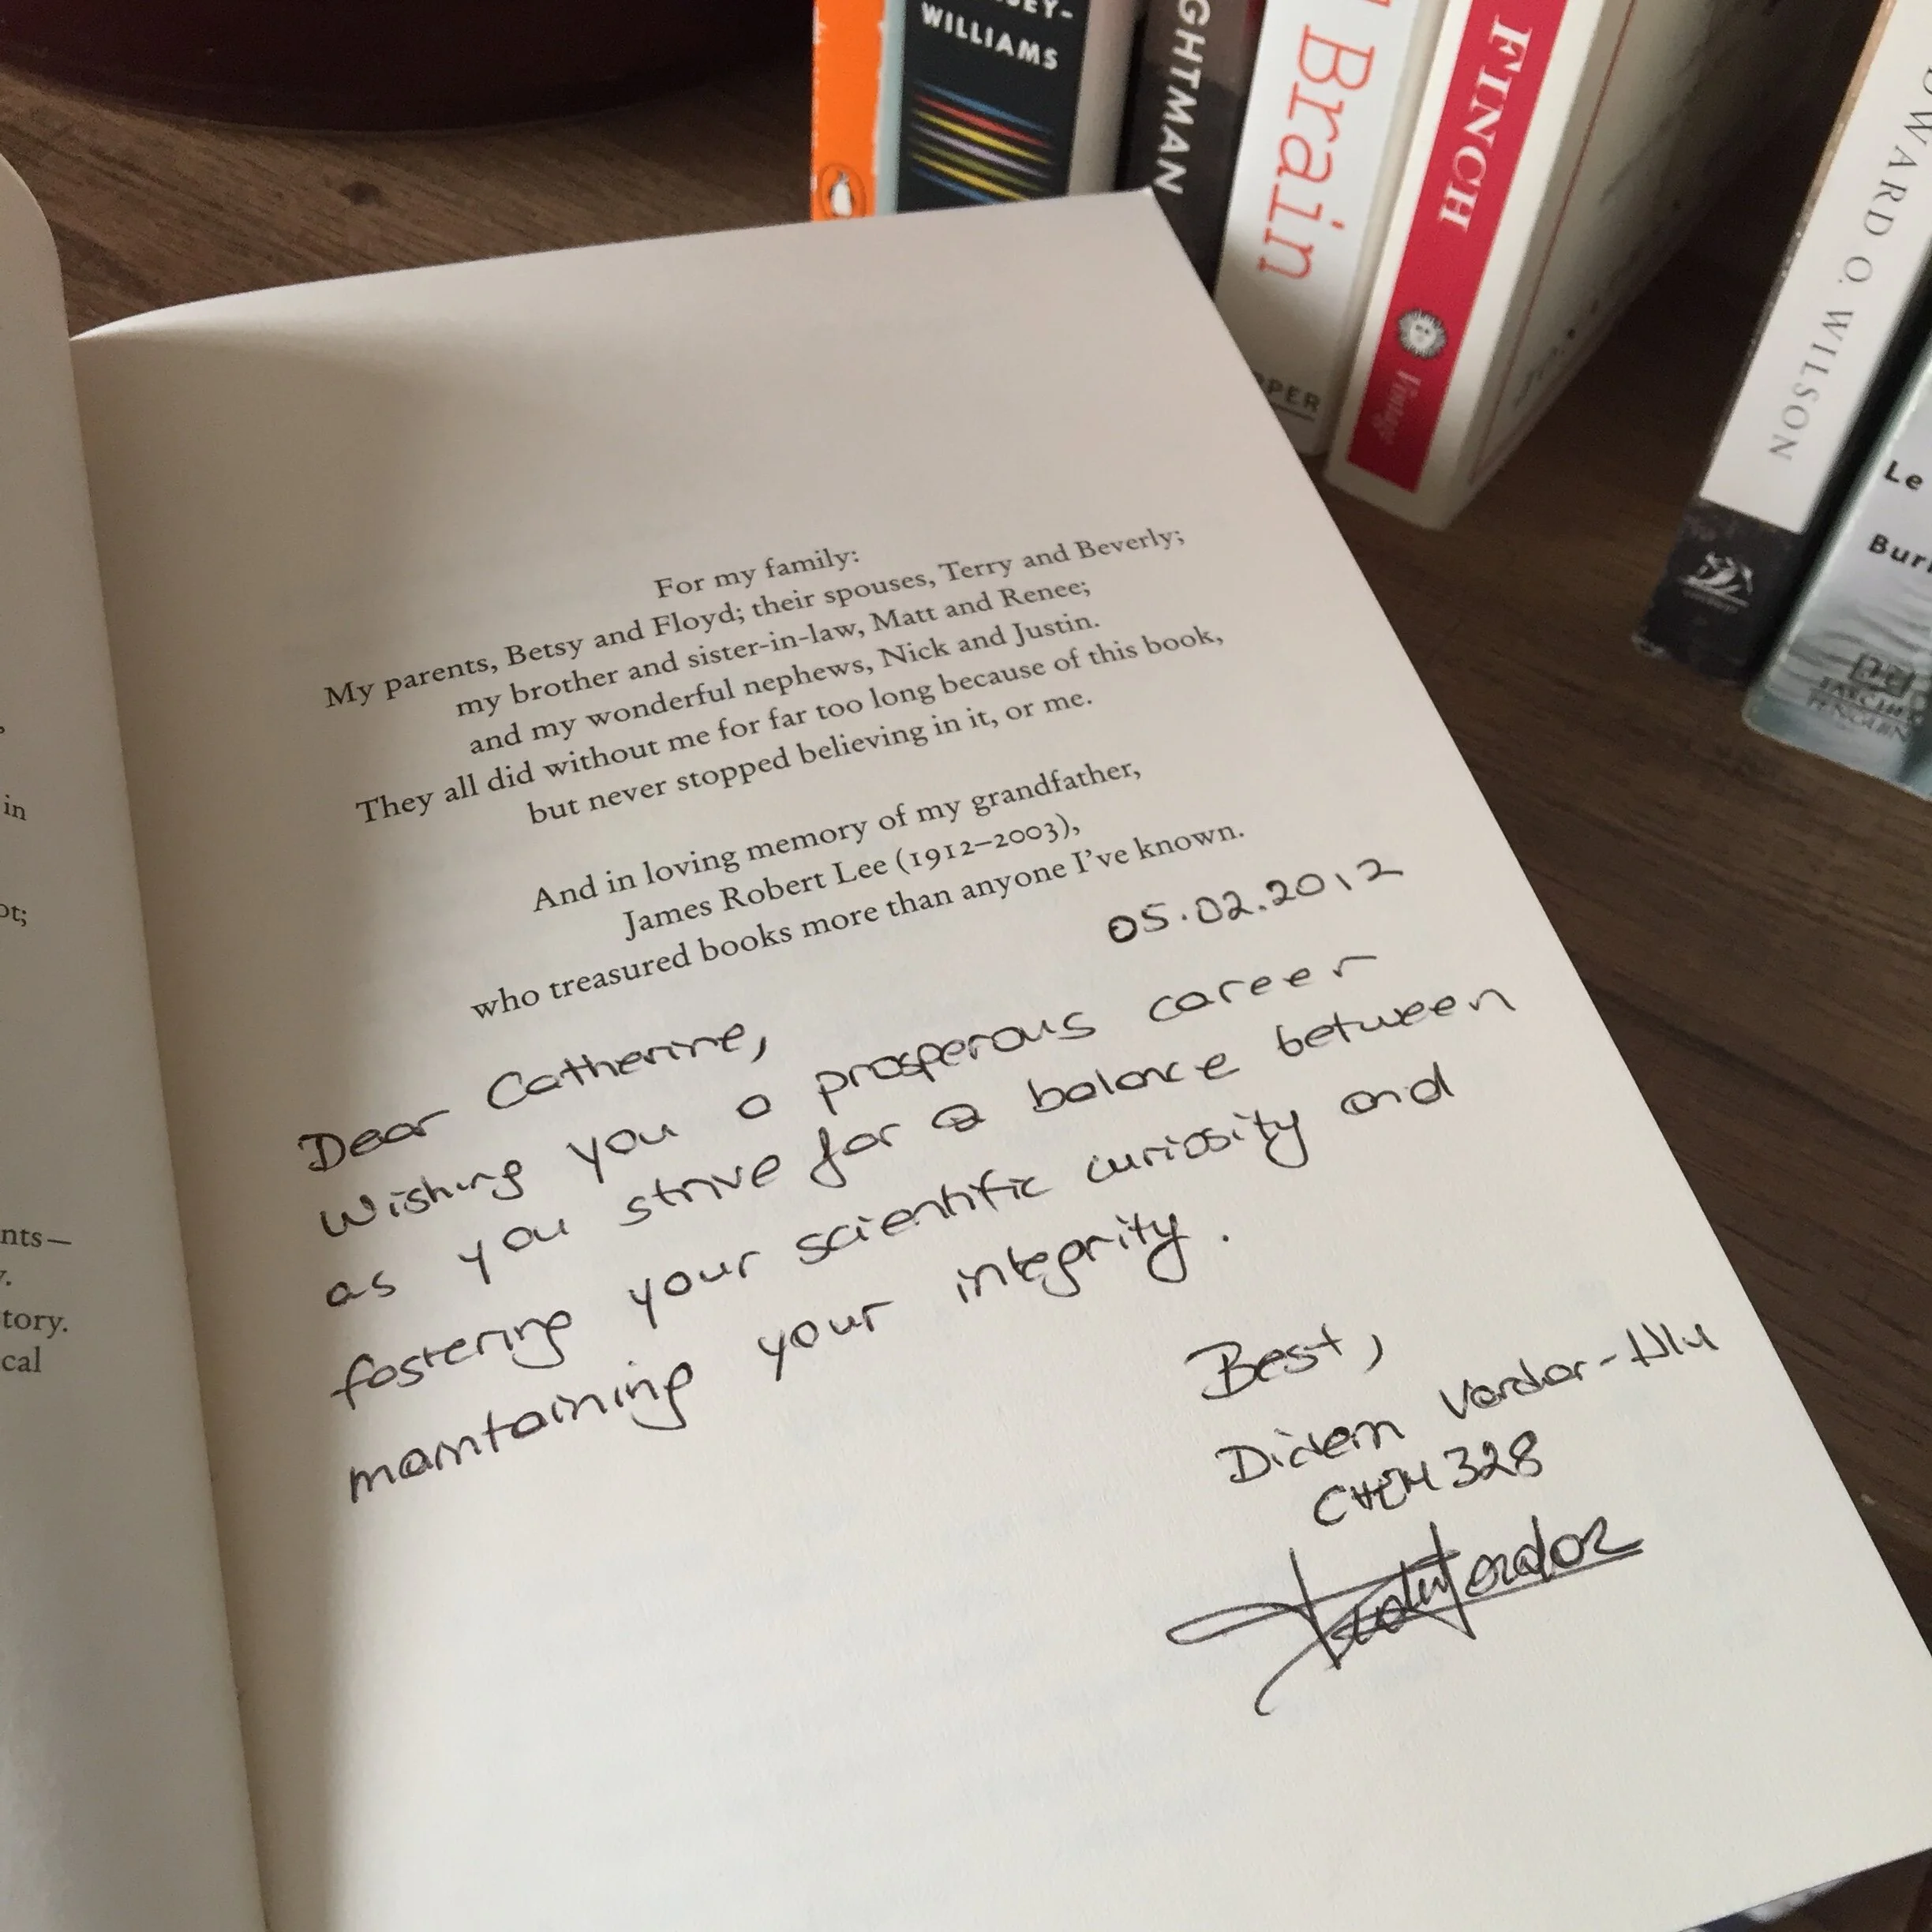 WILLIAMS
GHTMAN
Brain
PPER
FINCH
Vintage
WARD O. WILSON
Le
Buri
TARCHER
PENGUIN
in
ot;
nts—
tory.
cal
For my family:
My parents, Betsy and Floyd; their spouses, Terry and Beverly;
my brother and sister-in-law, Matt and Renee;
and my wonderful nephews, Nick and Justin.
They all did without me for far too long because of this book,
but never stopped believing in it, or me.
And in loving memory of my grandfather,
James Robert Lee (1912–2003),
who treasured books more than anyone I've known.
05.02.2012
Dear Catherine,
Wishing you a prosperous career
as you strive for a balance between
fostering your scientific curiosity and
maintaining your integrity.
Best,
Didem Vardar-Ulu
CHEM 328